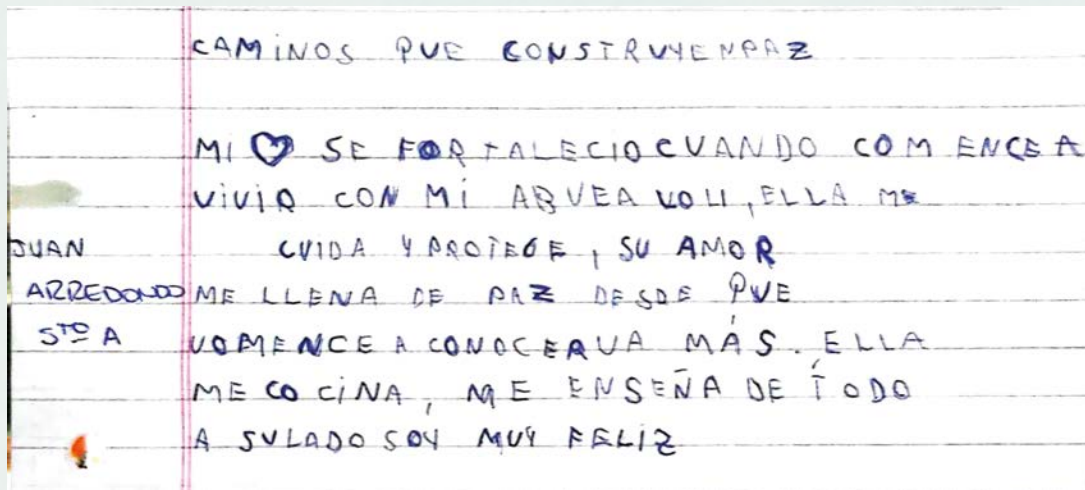 CAMINOS PUE CONSTRUYENPAZ
MI ♡ SE FORTALECIO CUANDO COMENCE A
VIVIR CON MI ABVEA VOLI, ELLA ME
CUIDA Y PROTEGE, SU AMOR
ME LLENA DE PAZ DESDE PUE
VOMENCE A CONOCERVA MÁS. ELLA
ME COCINA, ME ENSEÑA DE TODO
A SULADO SOY MUY FELIZ
JUAN
ARREDONDO
5TO A